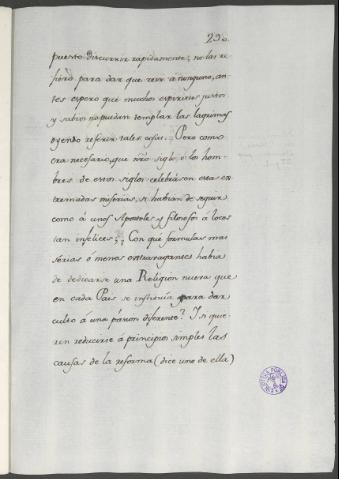 290
puesto discurrir rapidamente; no las re
fiero para dar que reir á ninguno, an-
tes espero que muchos espiritus justos
y sabios no puedan templar las lagrimas
oyendo referir tales cosas. Pero como
era necesario, que nro siglo, i los hom-
bres de estos siglos celebrasen estas es
tremadas miserias, si habian de seguir
como á unos Apostoles y filosofos á locos
tan infelices; ¿Con qué formulas mas
serias ó menos extravagantes habia
de dedicarse una Religion nueva que
en cada Pais se instituía para dar
culto á una pasion diferente? I si quie-
ren reducirse á principios simples las
causas de la reforma (dice uno de ella)